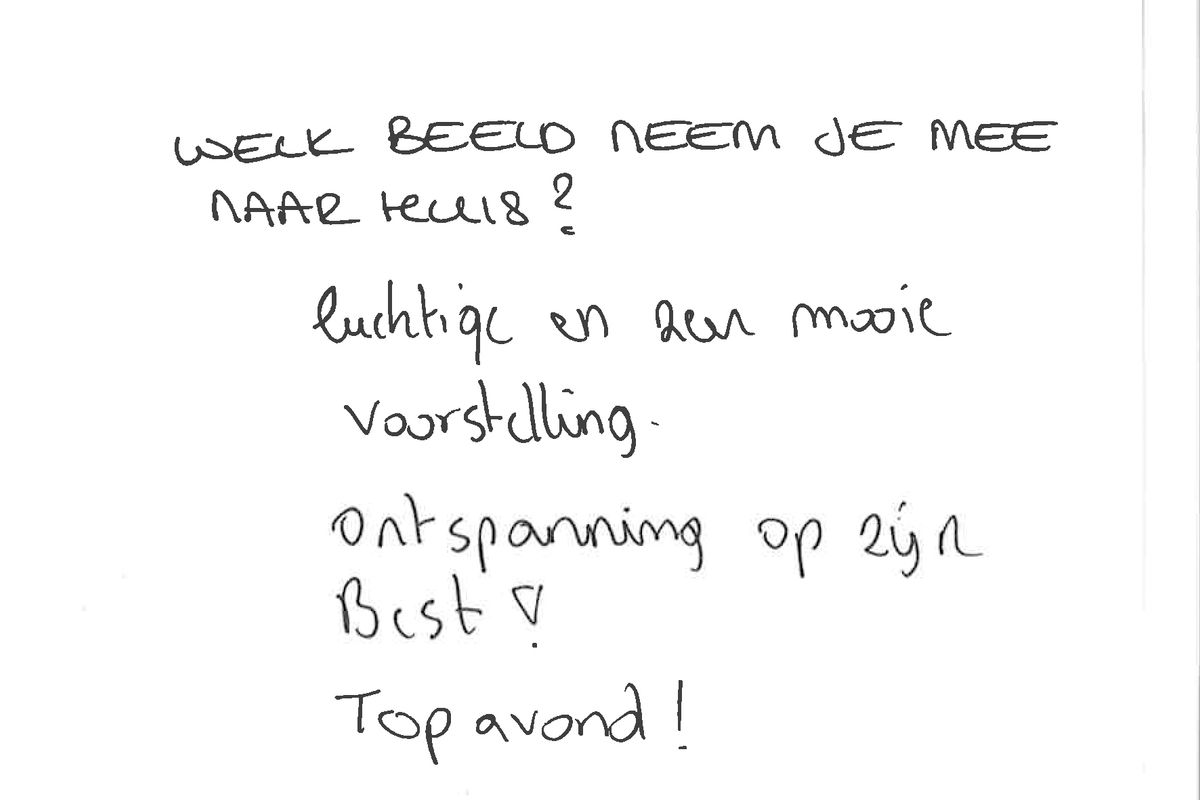 WELK BEELD NEEM JE MEE
NAAR HUIS?
luchtige en zeer mooie
voorstelling.
Ontspanning op zijn
Best!
Top avond!